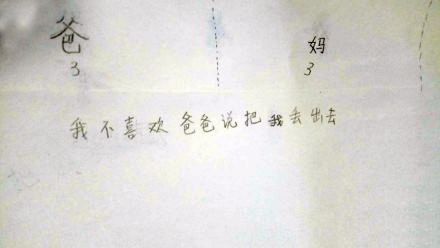 爸 妈
3 3
我不喜欢爸爸说把我丢出去